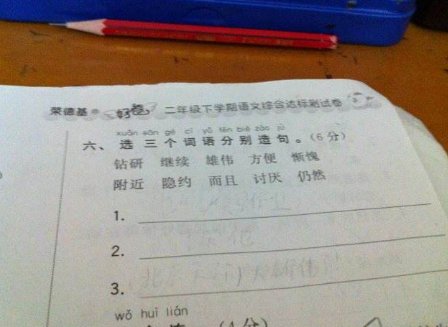 荣德基 好卷 二年级下学期语文综合达标测试卷
xuǎn sān gè cí yǔ fēn bié zào jù
六、选三个词语分别造句。(6分)
钻研 继续 雄伟 方便 惭愧
附近 隐约 而且 讨厌 仍然
1.
2.
3.
wǒ huì lián